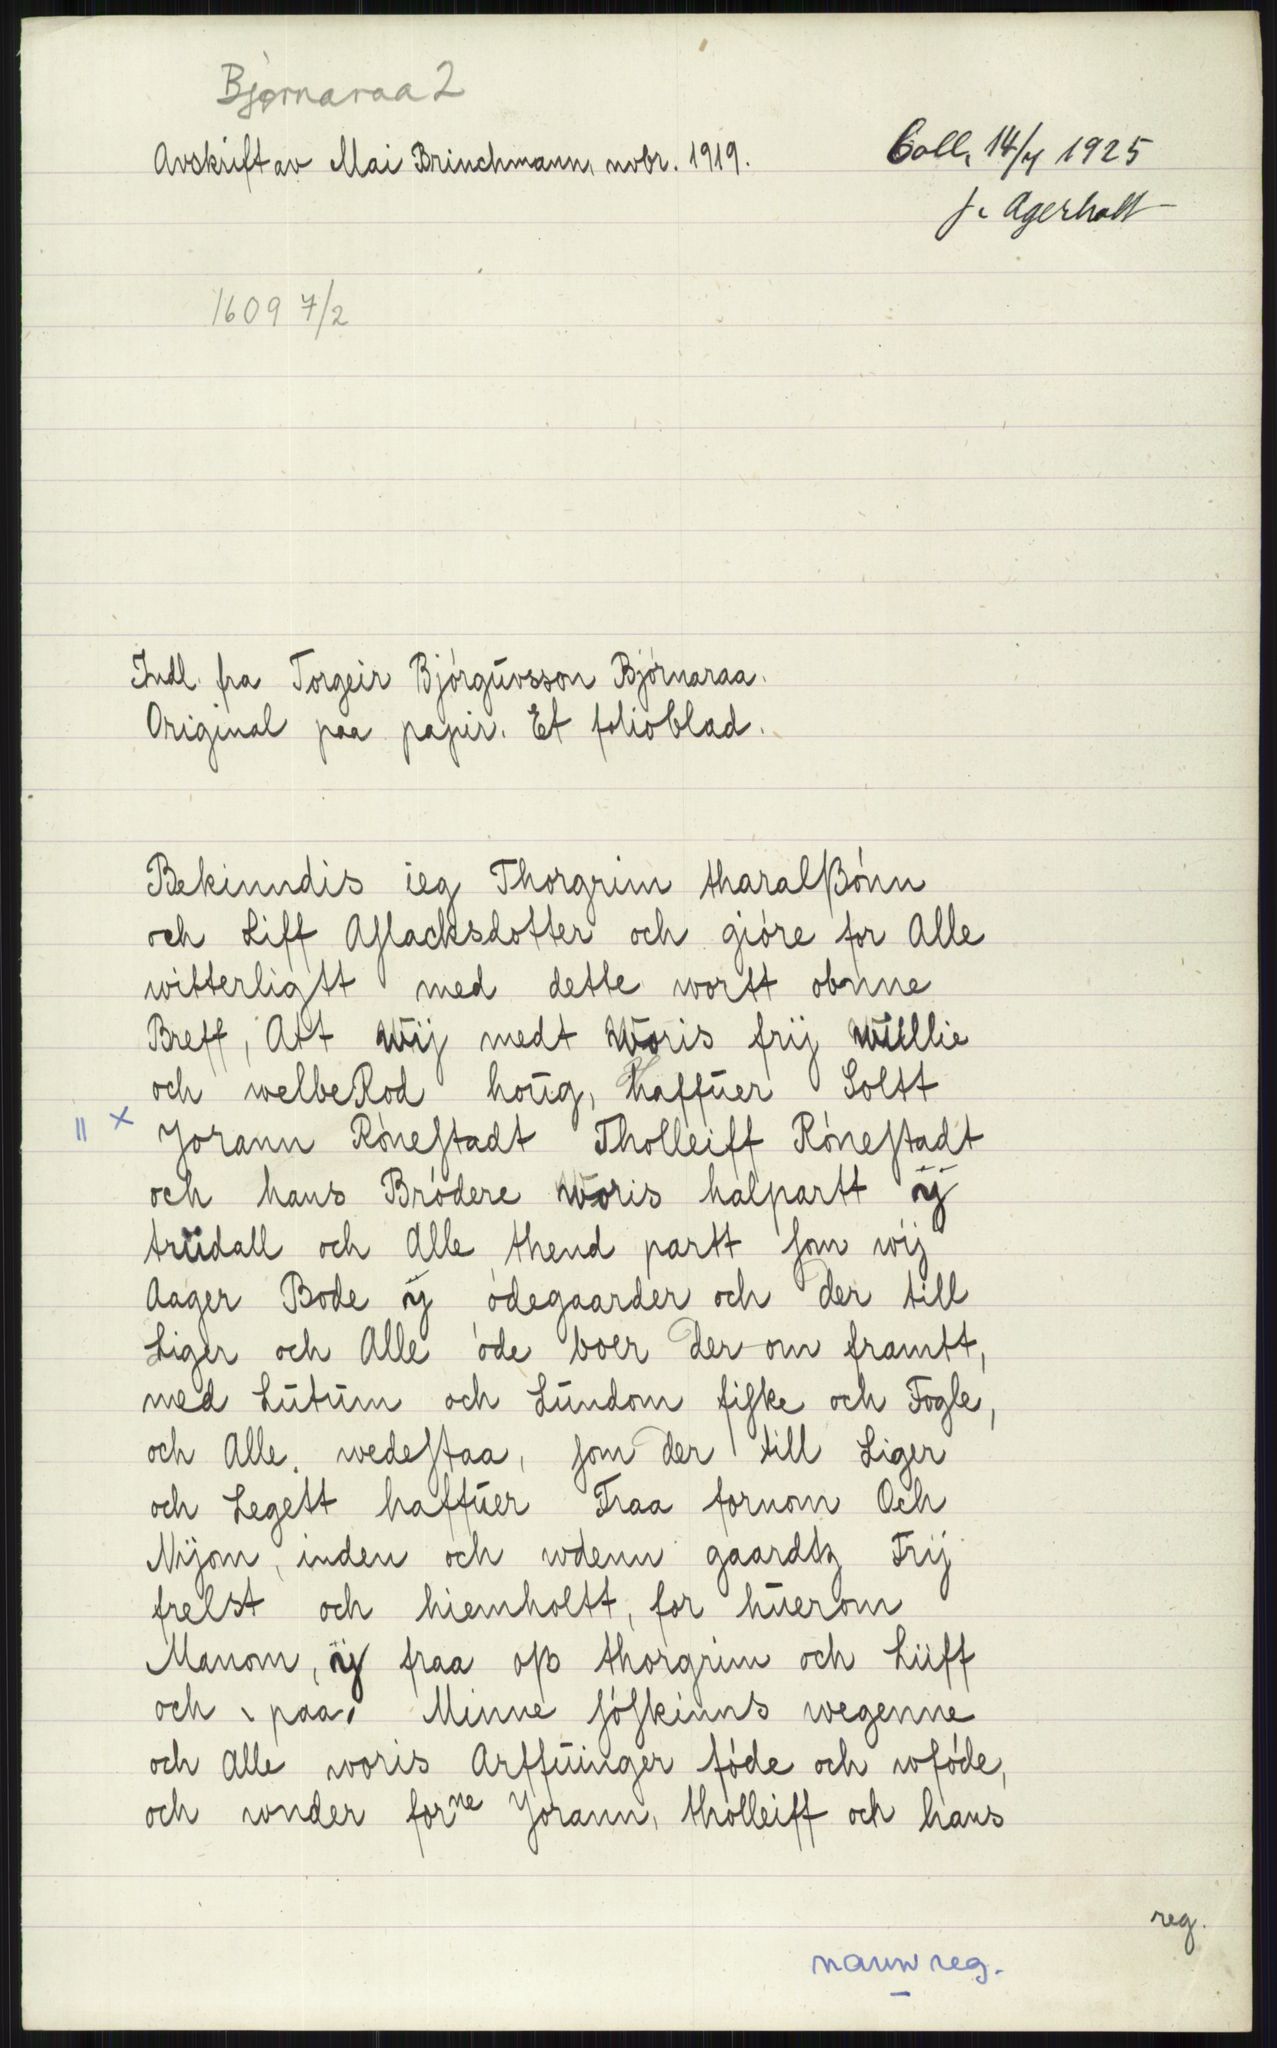 Bjørnaraa 2
Avskrift av Mai Brinchmann, novbr. 1919.
Coll. 14/4 1925
J. Agerholt
1609 7/2
Indl. fra Torgeir Bjórgúvsson Bjórnaraa.
Original paa papir. Et folioblad.
Bekinndis ieg Thorgrim tharalßónn
och Liff Aslacksdotter och gióre for Alle
witterligtt med dette wortt obnne
Breff, Att Wij medt Woris frij Willie
och welbeRod hoūg, haffūer Soltt
" x Jorann Rónestadt Tholleiff Rónestadt
och hans Bródere Woris halpartt ÿ
trüdall och Alle thend partt som wij
Aager Bode ÿ ódegaarder och der till
Liger och Alle óde boer der om framtt,
med Lūtūm och Lūndom fiske och Fogle,
och Alle. wedestaa, som der till Liger
och Legett haffūer Fraa fornom Och
Nÿom, inden och wdenn gaardtz Frij
frelst och hiemholtt, for hūerom
Manom, ÿ fraa oß thorgrim och Liiff
och paa Minne sóskinns wegenne
och Alle woris Arffūinger fóde och wfóde,
och wnder forne Jorann, tholleiff och hans
reg.
navn reg.